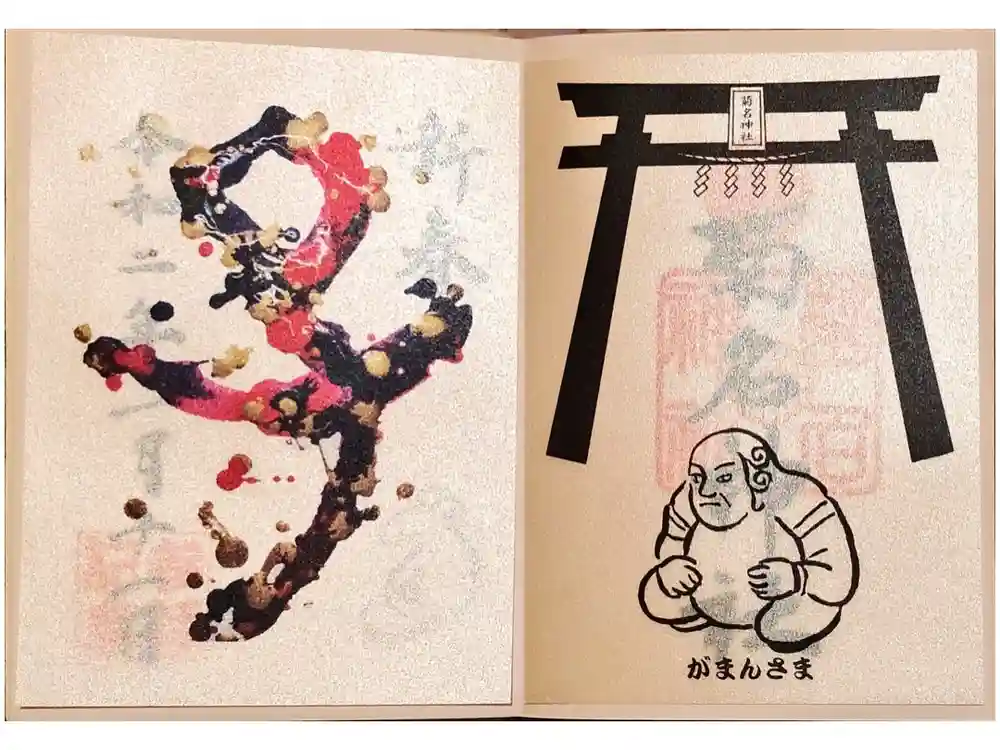 菊名神社
菊名神社
がまんさま
新春
子
令和二年一月十